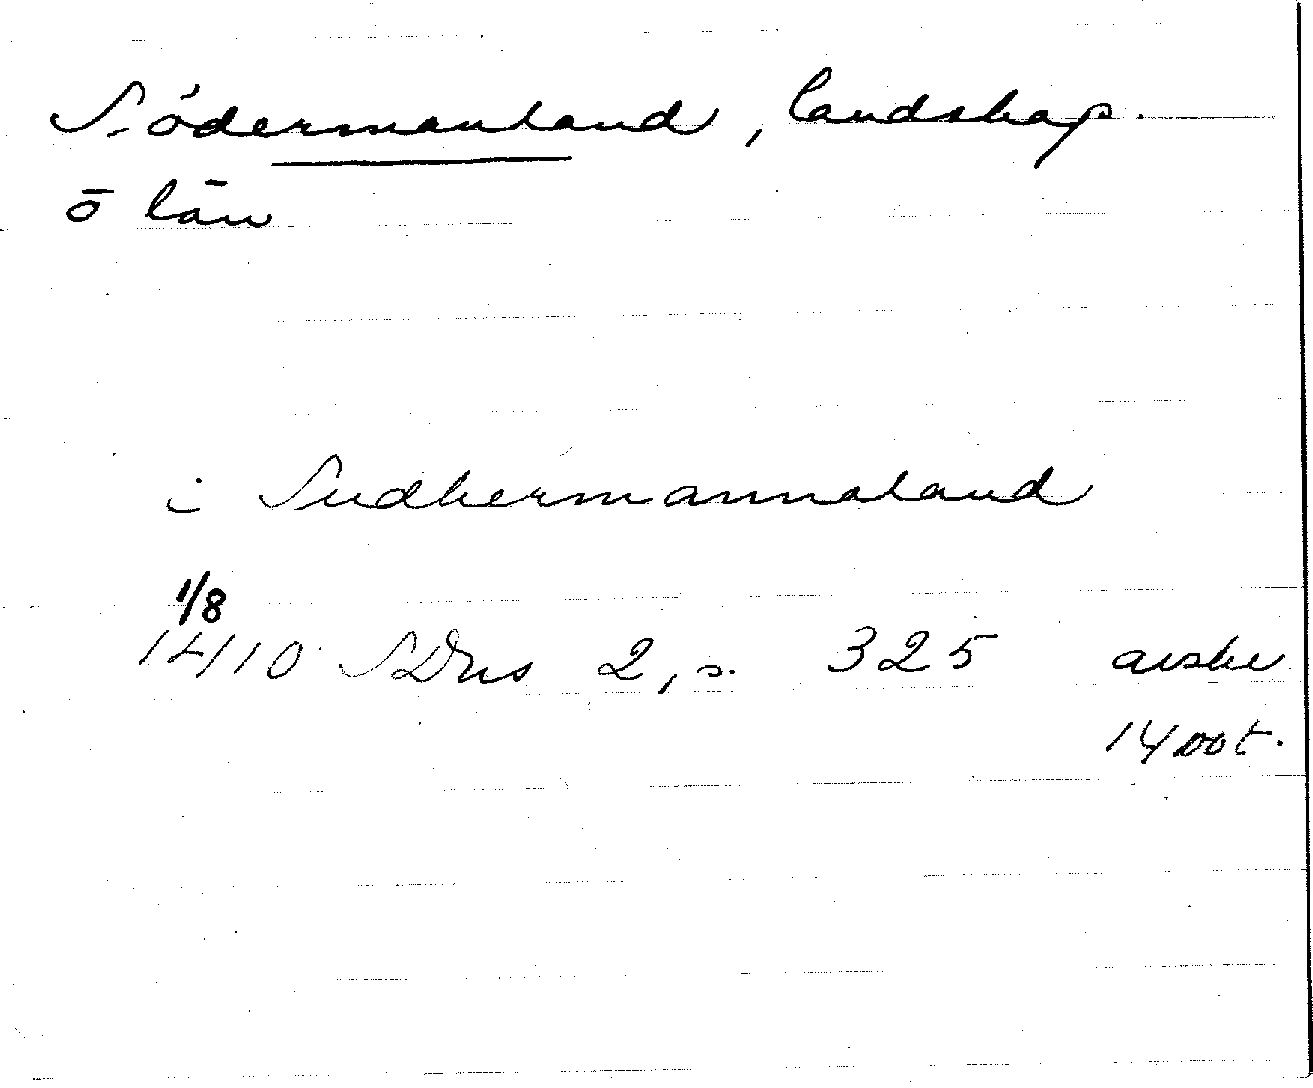 Södermanland, landskap.
o län
i Sudhermannaland
1/8
1410 SDns 2, s. 325 avskr
1400t.